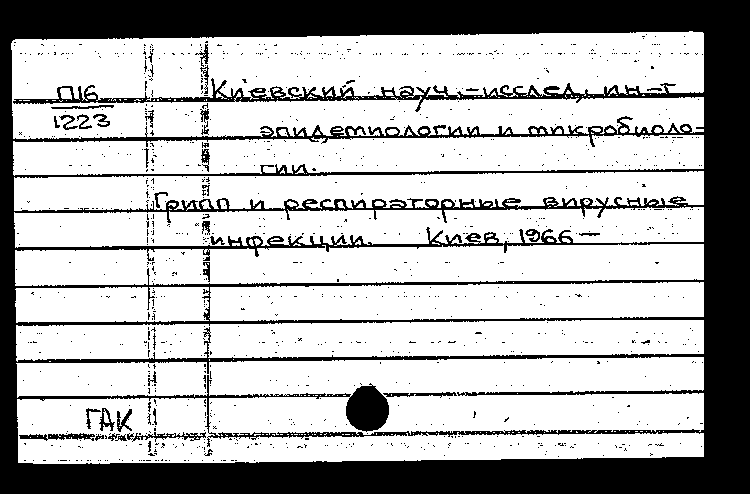 П16
1223
Киевский науч.-исслед. ин-т
эпидемиологии и микробиоло-
гии.
Грипп и респираторные вирусные
инфекции. Киев, 1966 —
ГАК